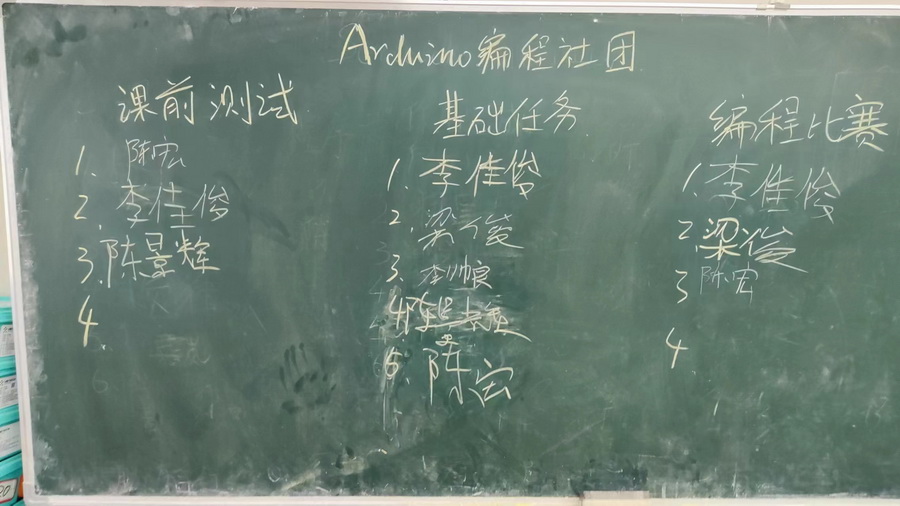 Arduino编程社团
课前测试
1. 陈宏
2. 李佳俊
3. 陈景辉
4.
基础任务
1. 李佳俊
2. 梁俊
3. 李帅良
4.
5. 陈宏
编程比赛
1. 李佳俊
2. 梁俊
3 陈宏
4